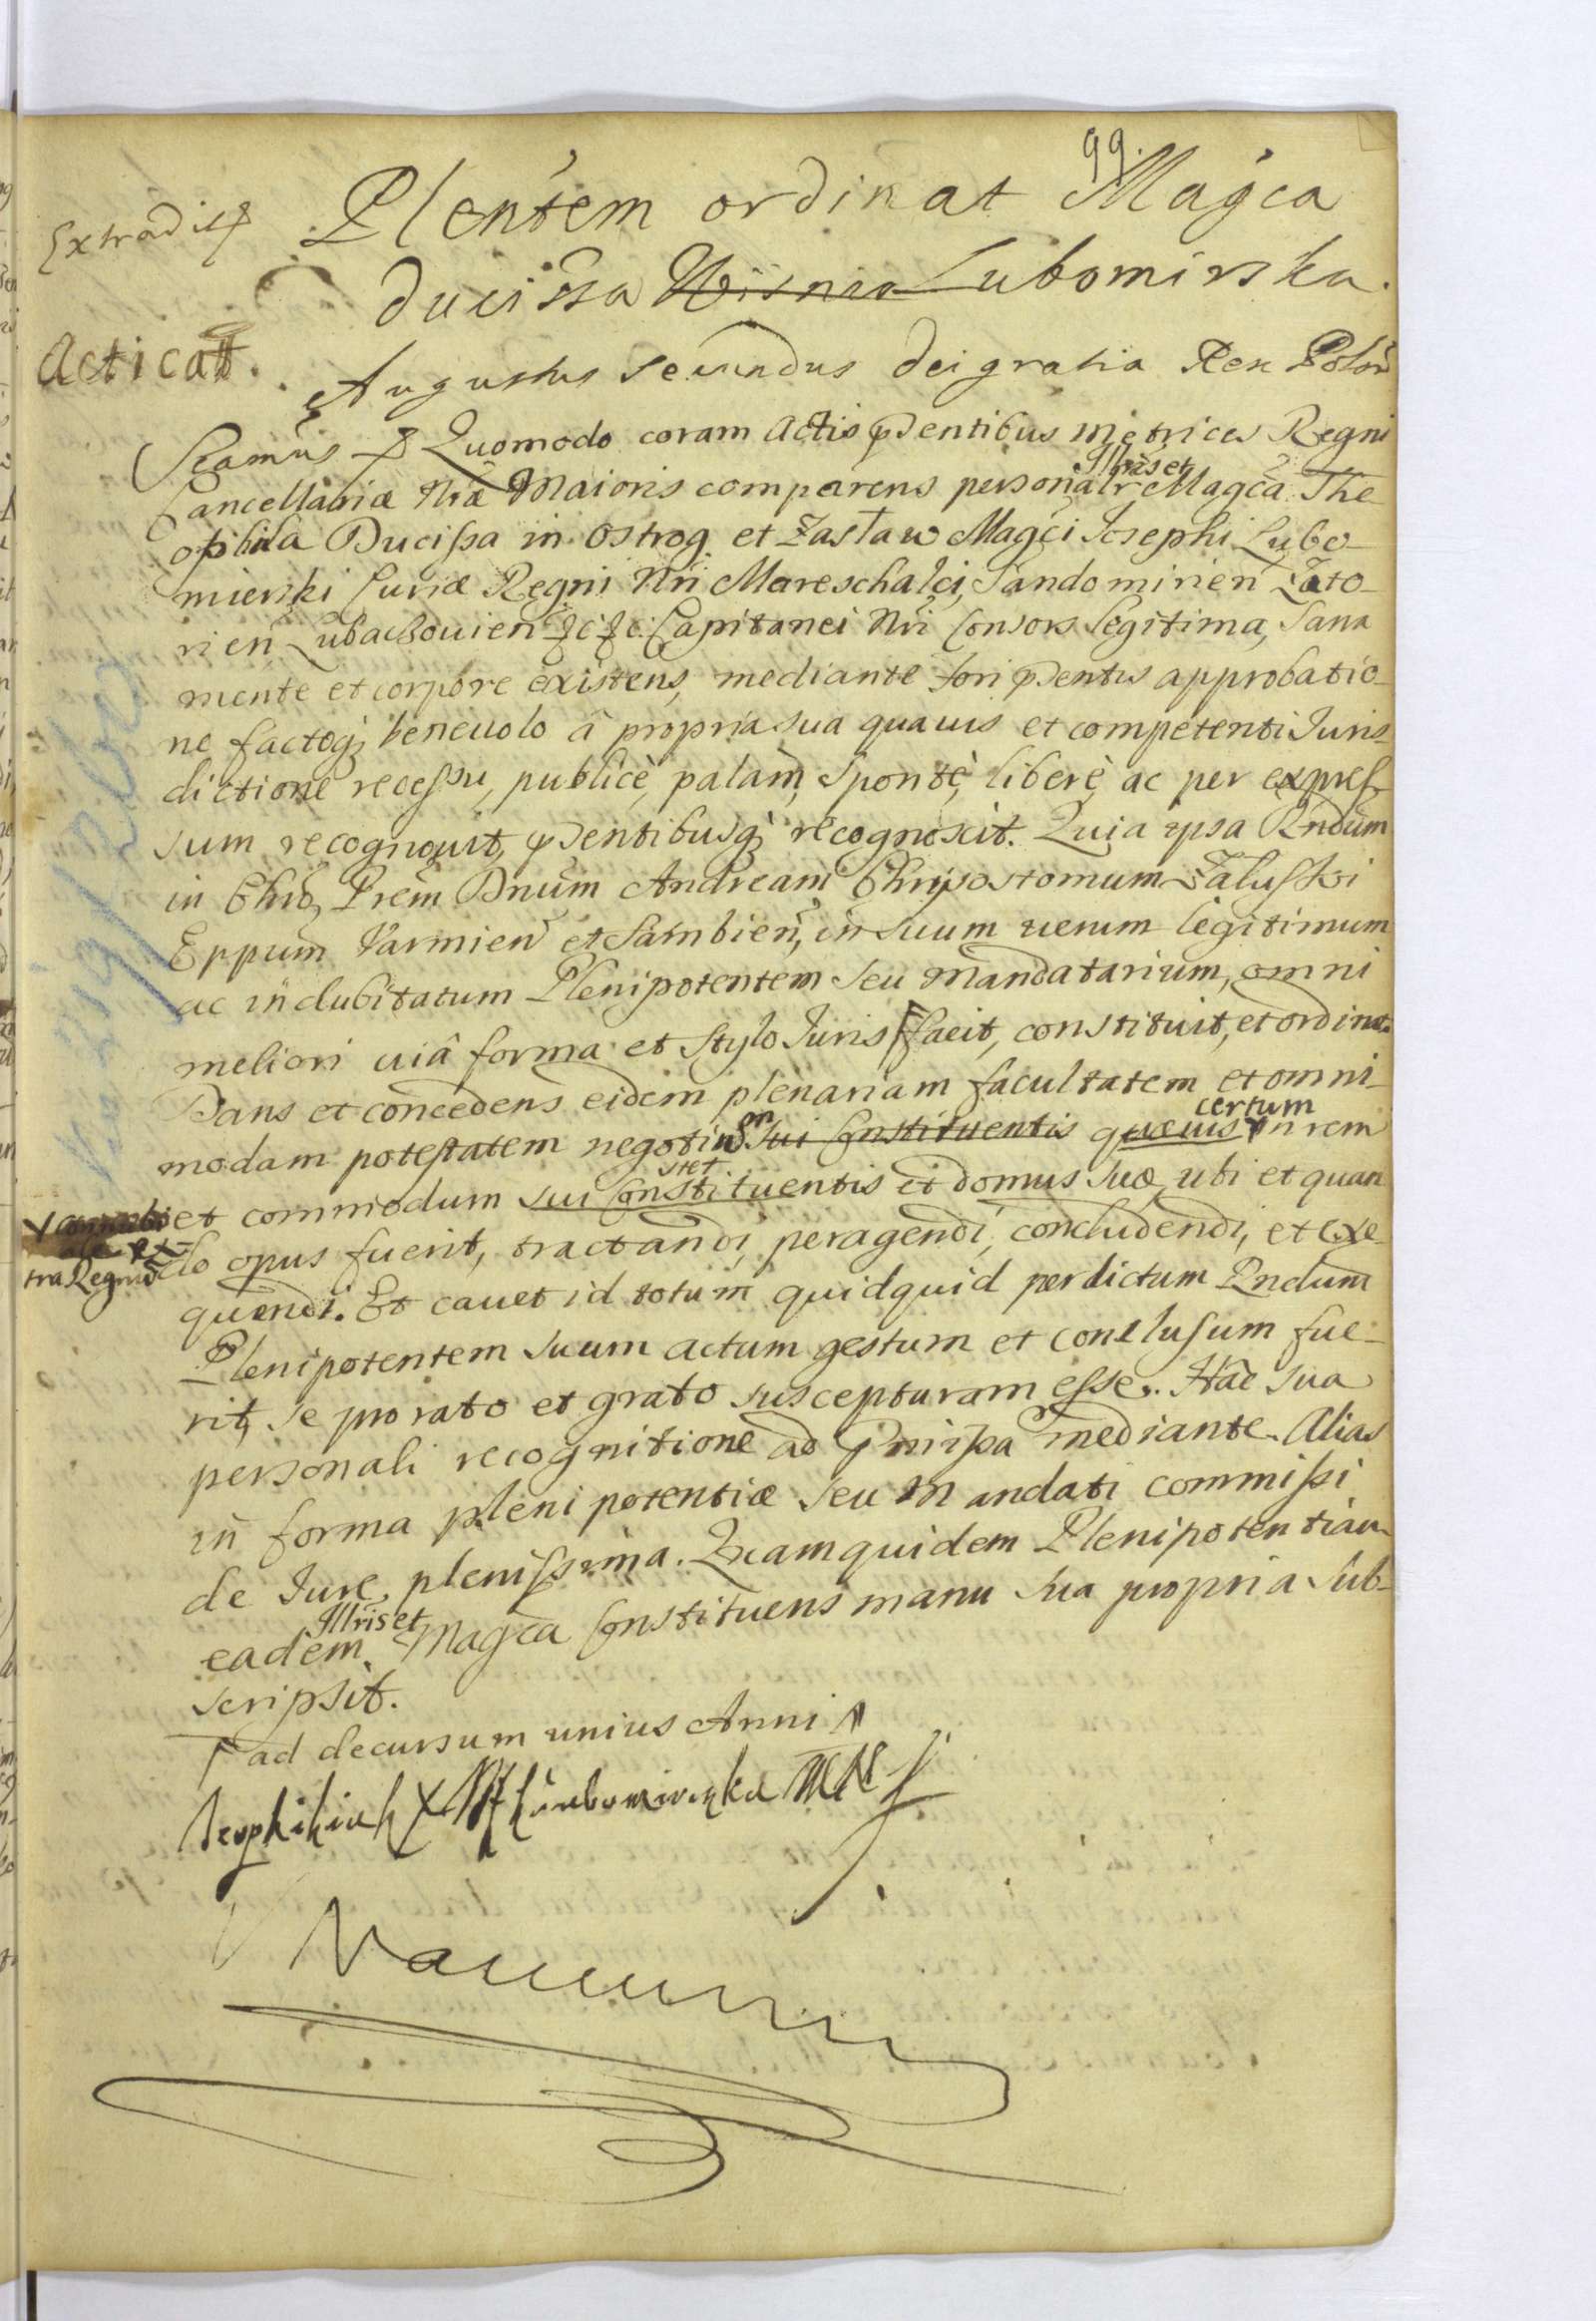 99.
Extradit
Plentem ordinat Magca
ducissa Wisnio Lubomirska.
Acticatt.
Augustus Secundus Dei gratia Rex Polon
Seamus Quomodo coram Actis pdentibus Metrices Regni
Cancellariæ Nræ Maioris comparens personalr Illris et Magca The
ophila Ducissa in Ostrog et Zasław Magci Josephi Lubo-
mierski Curiæ Regni Nri Mareschalci, Sandomirien Zato-
rien Lubaczouien &c &c. Capitanei Nri Consors legitima, Sana
mente et corpore existens, mediante fori pdentis approbatio-
ne factoq; beneuolo à propria sua quauis et competenti Juris-
dictione recessu, publicè, palàm, sponte, liberè, ac per expres-
sum recognouit, pdentibusq; recognoscit. Quia ipsa Rndum
in Chro Prem Dnum Andream Chrysostomum Załuski
Eppum Varmien et Sambien, in suum uerum legitimum
ac indubitatum Plenipotentem seu Mandatarium, omni
meliori uiâ forma et stylo Juris facit, constituit, et ordinat.
Dans et concedens eidem plenariam facultatem et omni-
modam potestatem negotium sui Constituentis quæuis certum in rem
et commodum sui Constituentis stet et domus suæ, ubi et quan
ex-
tra Regnum
do opus fuerit, tractandi, peragendi, concludendi, et exe-
quendi. Et cauet id totum quidquid per dictum Rndum
Plenipotentem suum actum gestum et conclusum fue-
rit, se pro rato et grato suscepturam esse. Hac sua
personali recognitione ad pmissa mediante. Alias
in forma plenipotentiæ seu Mandati commissi
de Jure plenissima. Quam quidem Plenipotentiam
eadem Illris et Magca Constituens manu sua propria sub-
scripsit.
ad decursum unius Anni
Lubomirska